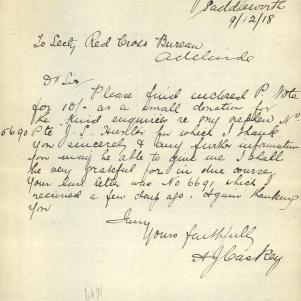 Saddleworth
9/12/18
To Secty Red Cross Bureau
Adelaide
D Sir
Please find inclosed P. Note
for 10/- as a small donation for
the kind enquiries re my nephew No
5690 Pte J. S. Hunter for which I thank
you sincerely & any further information
you may be able to give me I shall
be very grateful for in due course,
Your last letter was No 6691 which
received a few days ago. Again thanking
you
Yours faithfully
6691